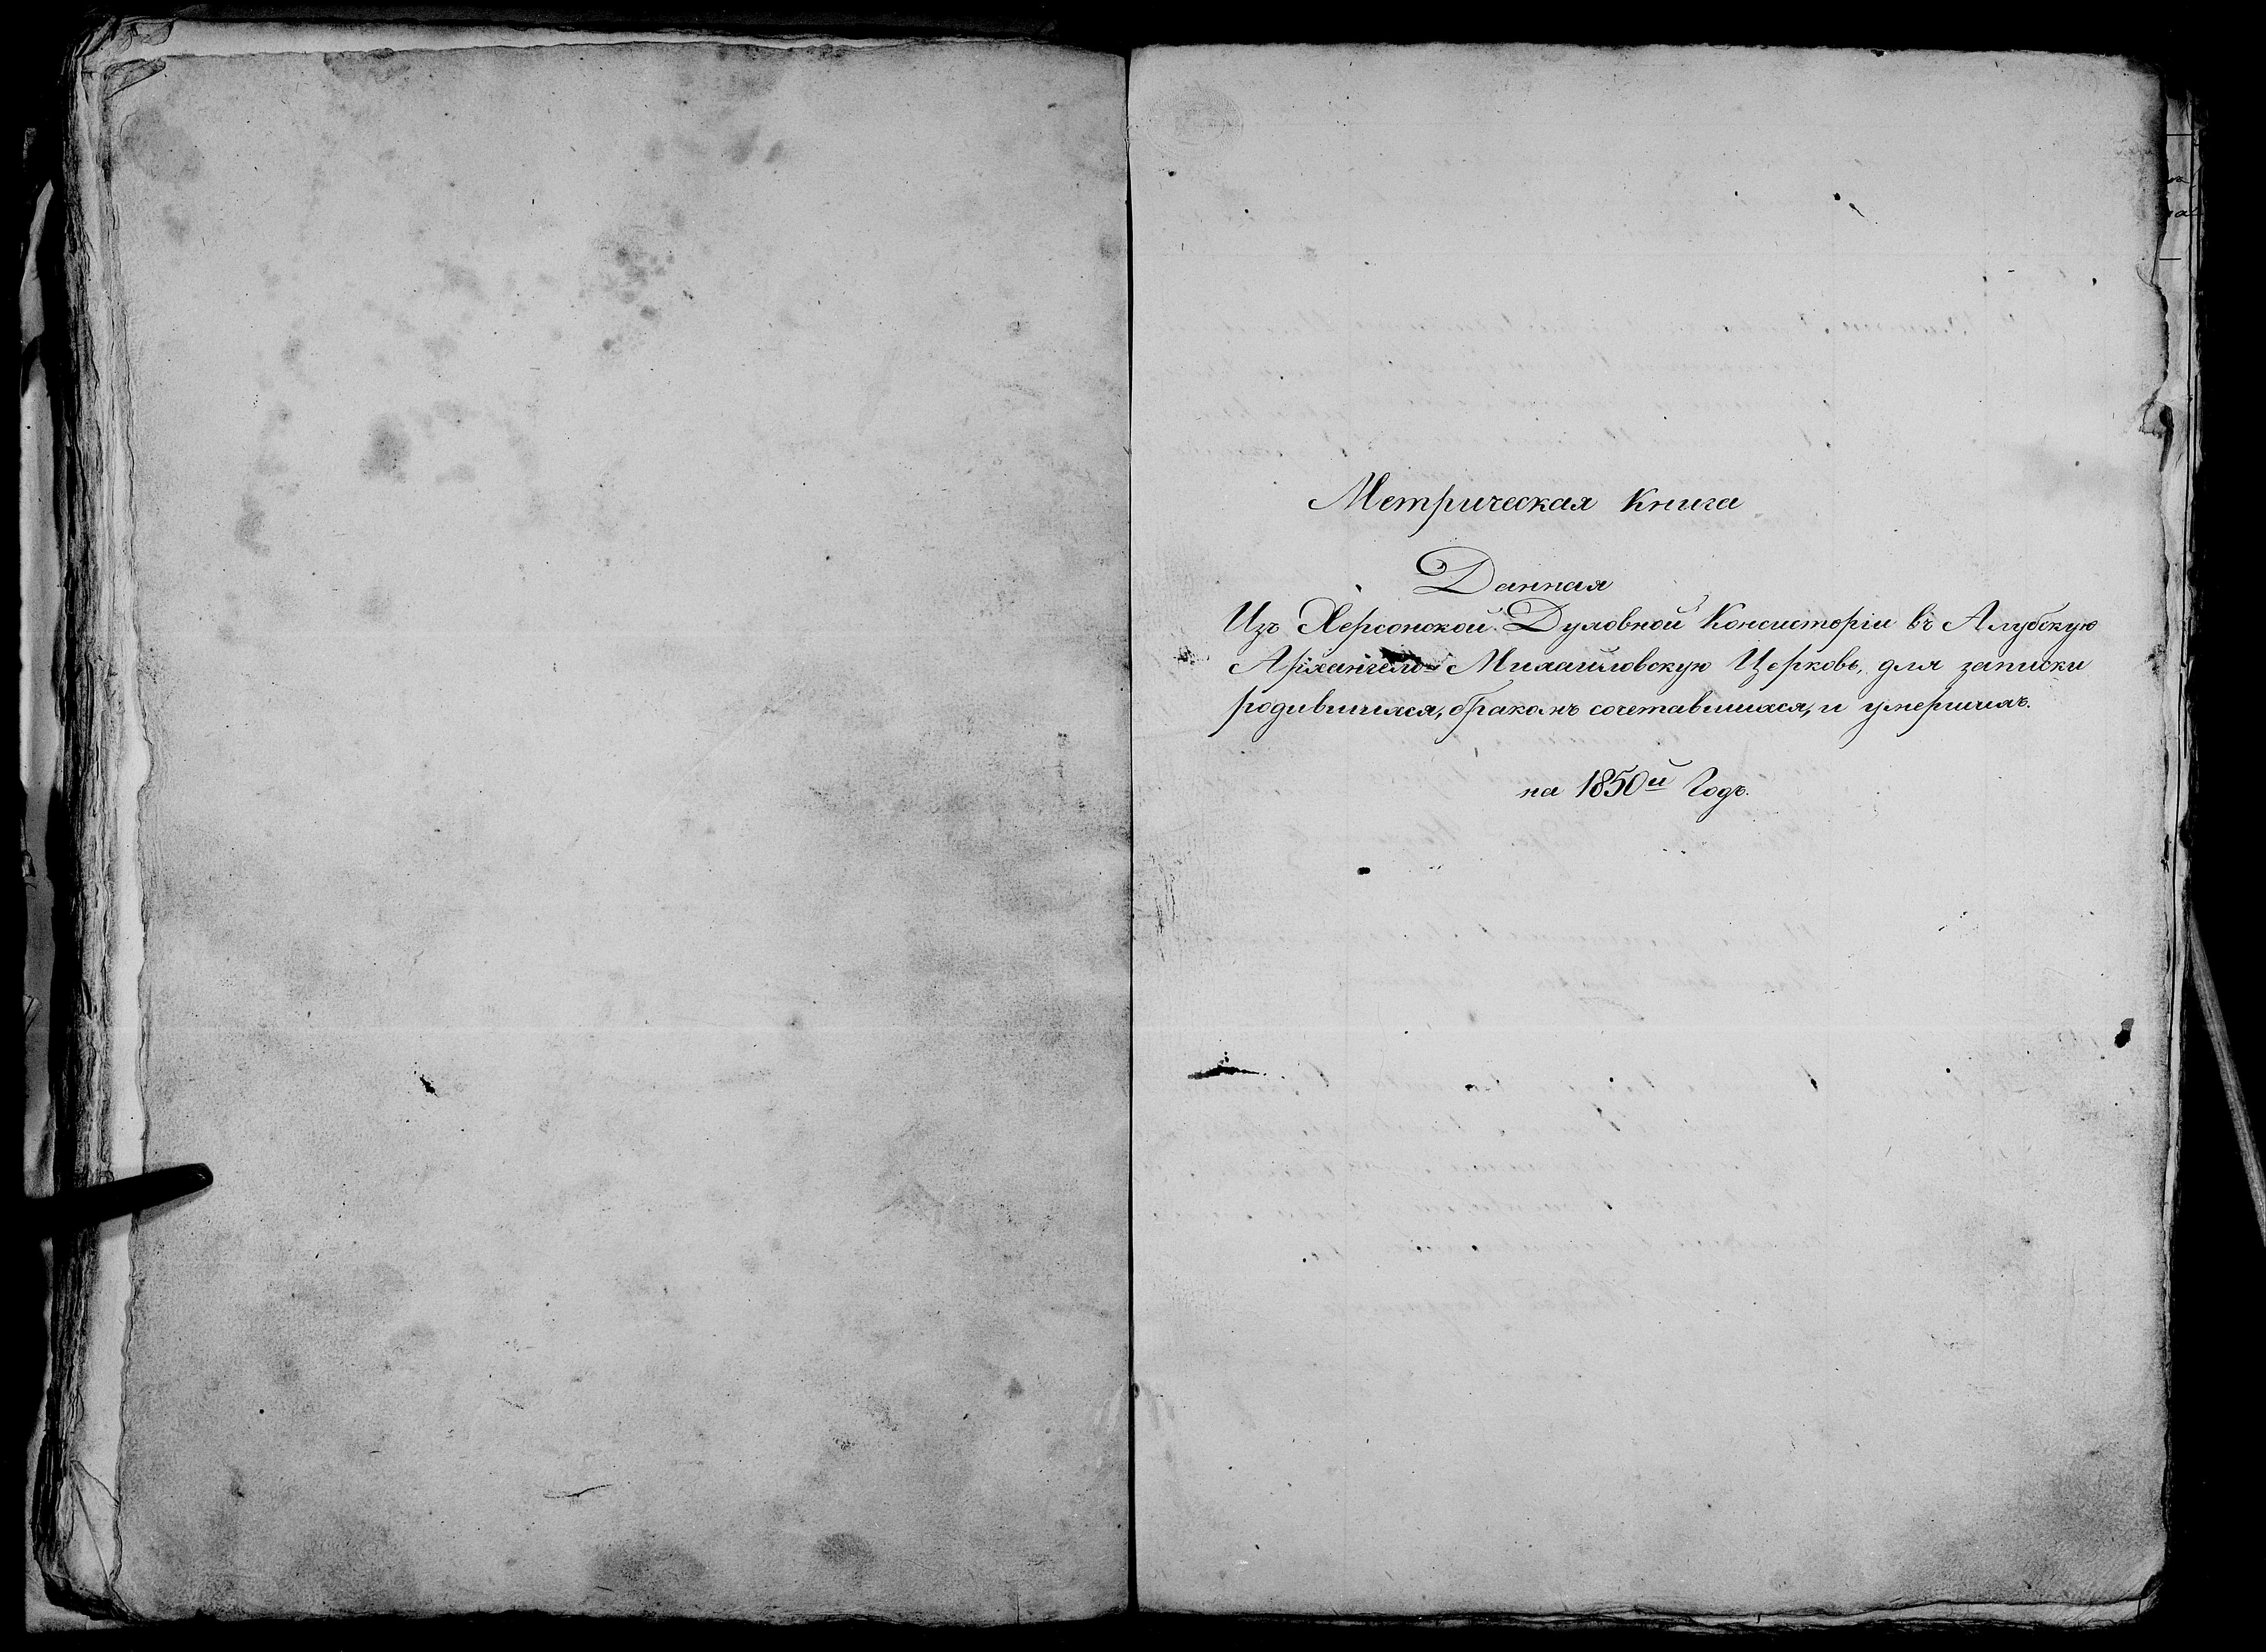 Метрическая Книга
Данная
Изъ Херсонской Духовной Консисторіи въ Алубскую
Архангело-Михайловскую Церковь, для записки
родившихся, бракомъ сочетавшихся, и умершихъ.
на 1850й Годъ.